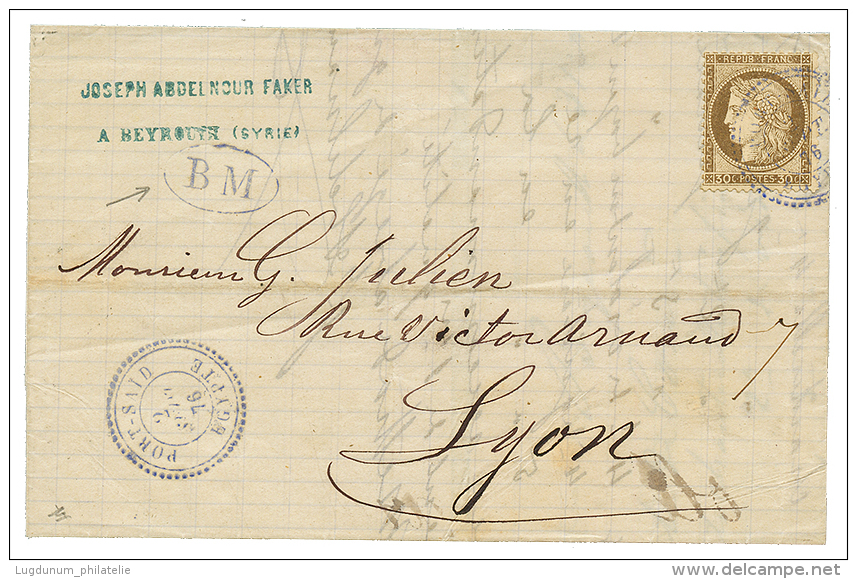 JOSEPH ABDELNOUR FAKER
A BEYROUTH (SYRIE)
BM
REPUB. FRANC.
30c POSTES 30c
Monsieur G. Julien
Rue Victor Arnaud 7
Lyon
PORT-SAID
76
EGYPTE
Lugdunum_philatelie
www.delcampe.net